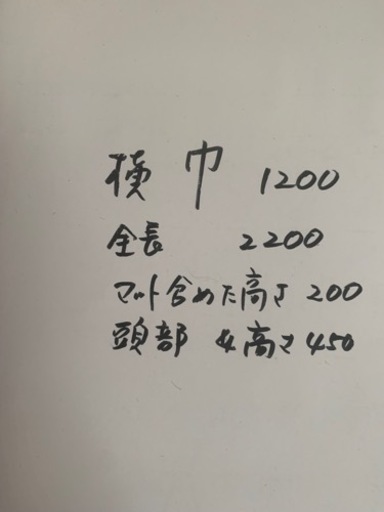 横巾 1200
全長 2200
マット含めた高さ 200
頭部 高さ 450